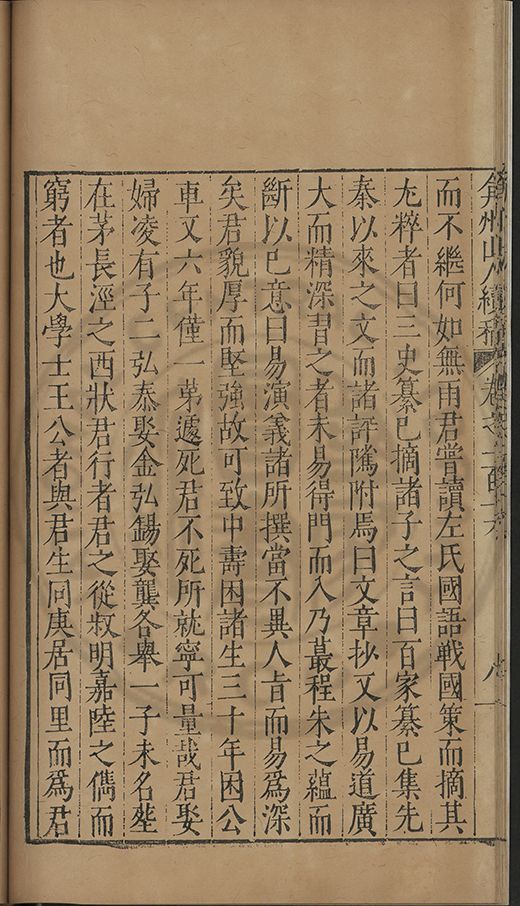 弇州山人續稿 卷之一百十六 八
而不繼何如無雨君嘗讀左氏國語戰國策而摘其
尤粹者曰三史纂巳摘諸子之言曰百家纂巳集先
秦以來之文而諸評隲附焉曰文章抄又以易道廣
大而精深習之者未易得門而入乃蕞程朱之蘊而
斷以巳意曰易演義諸所撰當不異人㫖而易爲深
矣君貌厚而堅強故可致中壽困諸生三十年困公
車又六年僅一第遽死君不死所就寧可量哉君娶
婦凌有子二弘㤗娶金弘錫娶龔各舉一子未名塟
在茅長涇之西狀君行者君之從叔明嘉陸之儁而
窮者也大學士王公者與君生同庚居同里而爲君